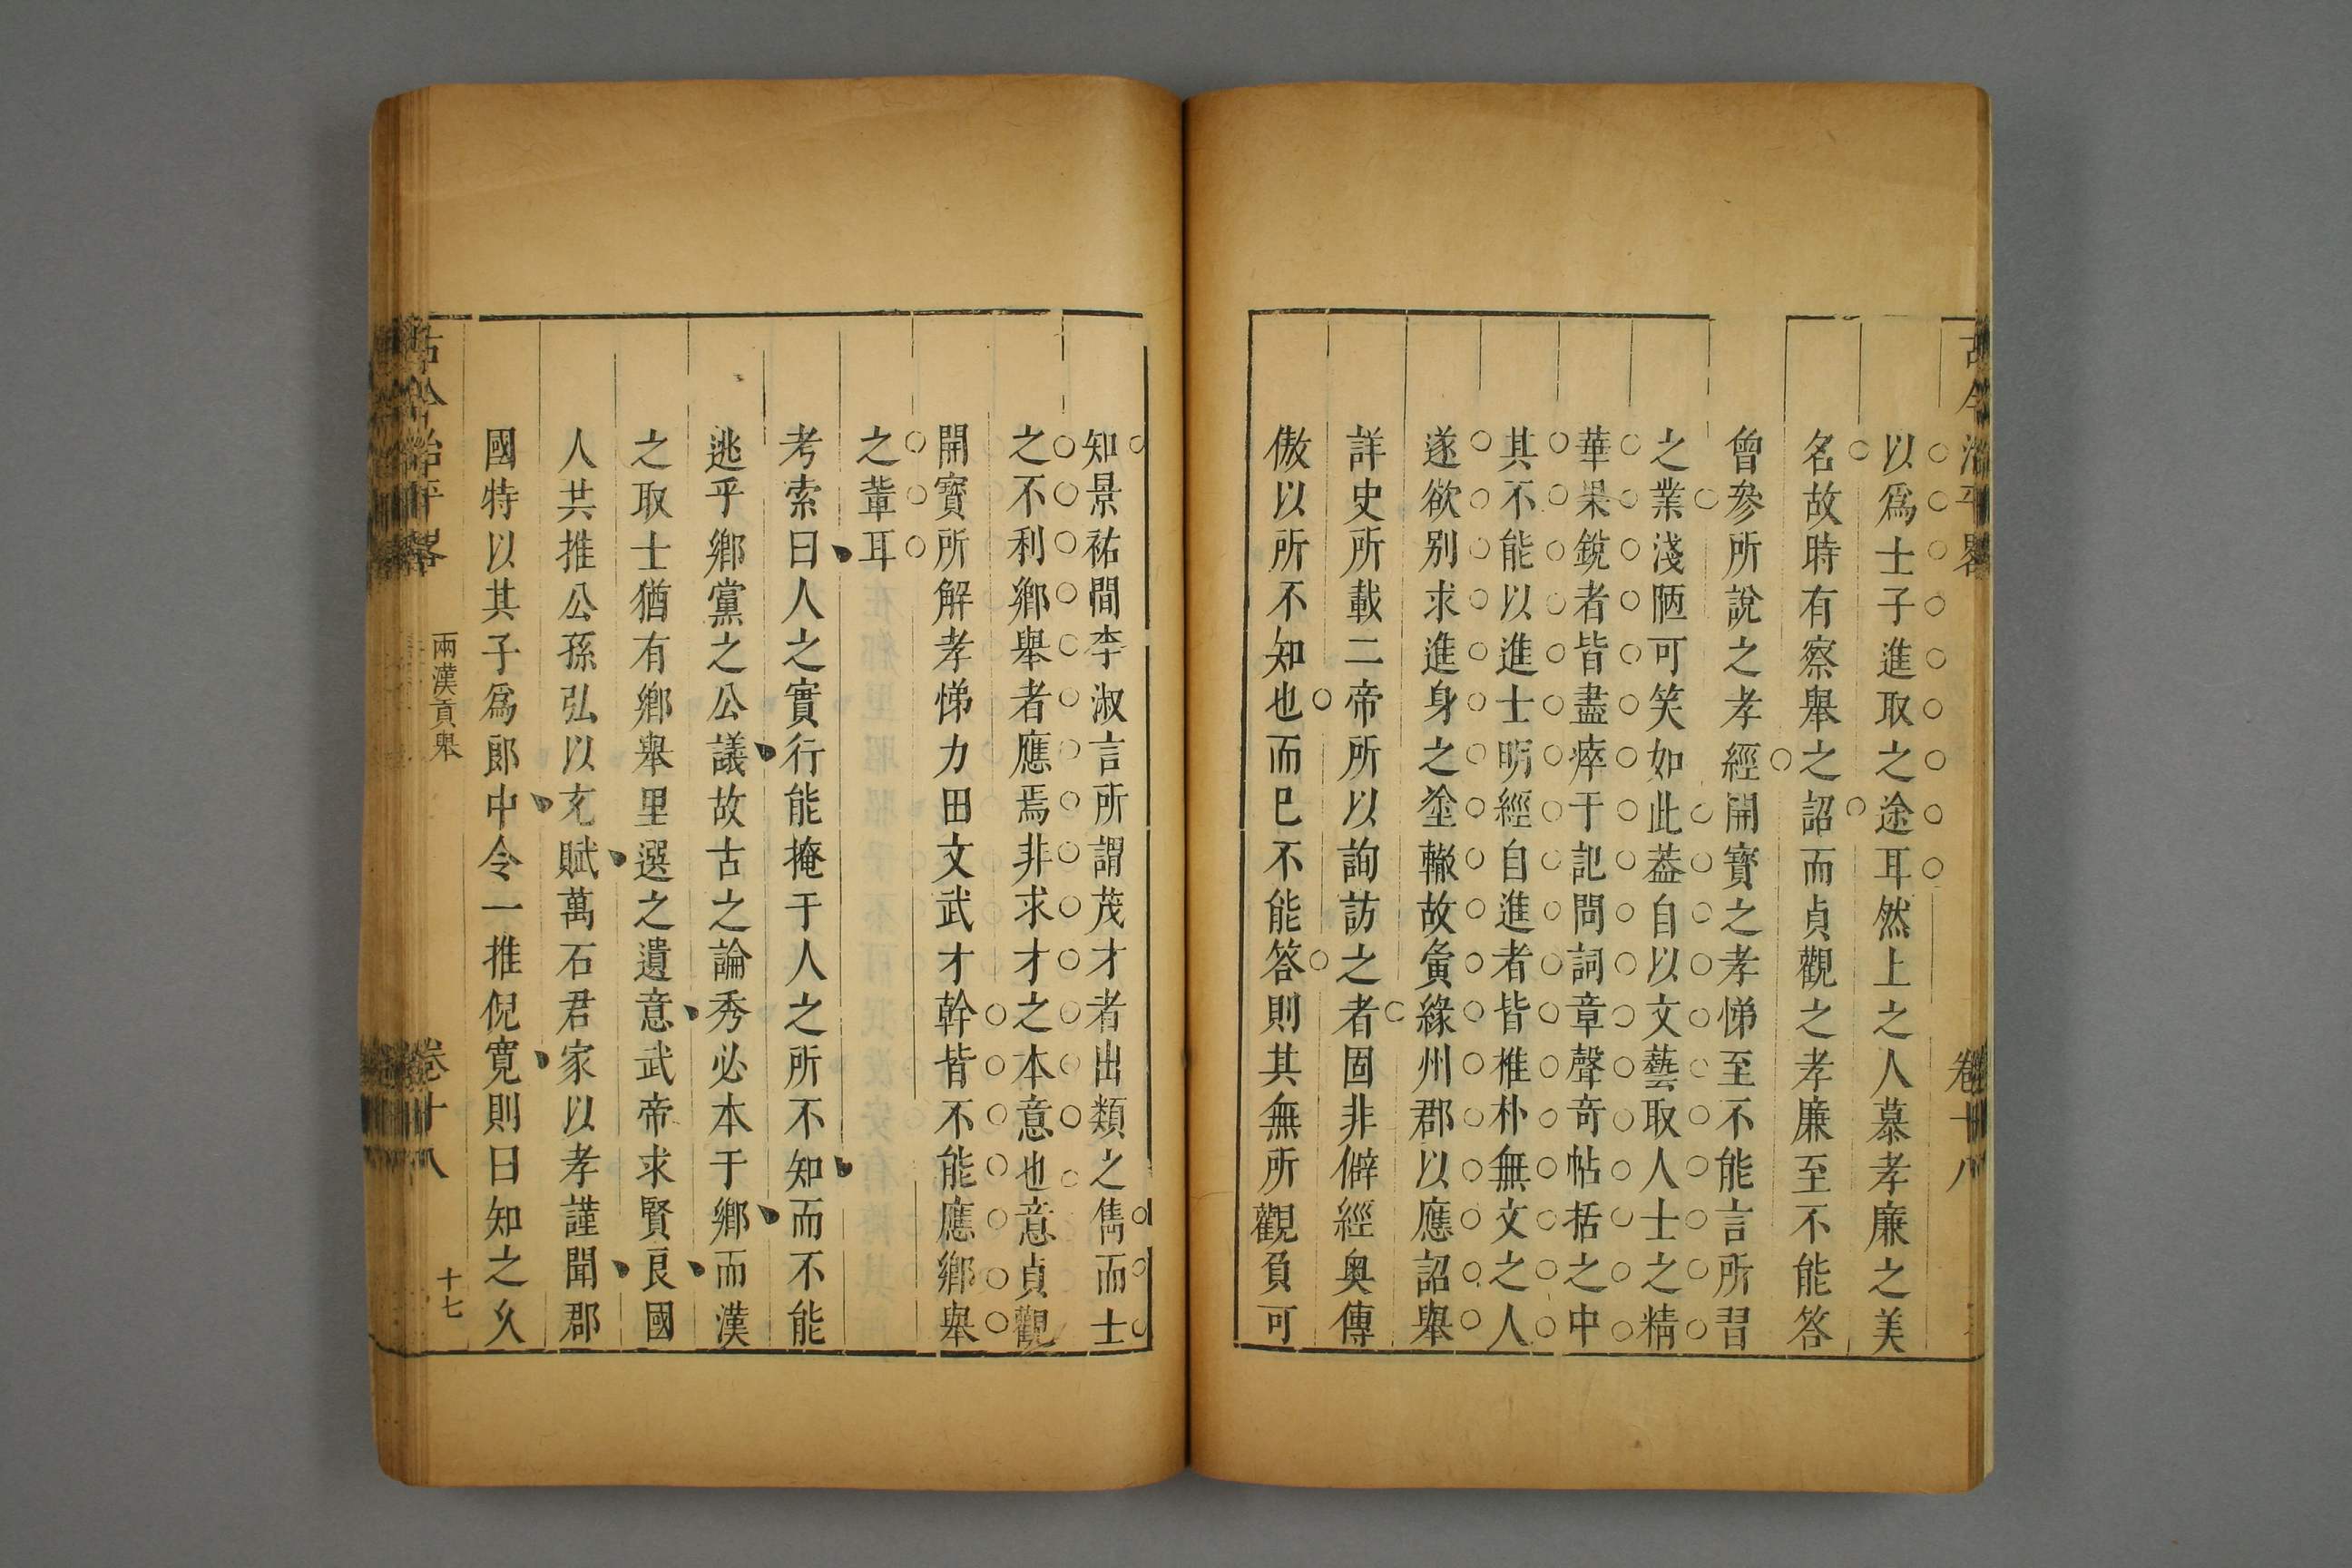 古今治平畧
卷十八
以爲士子進取之途耳然上之人慕孝廉之美
名故時有察舉之詔而貞觀之孝廉至不能答
曾參所說之孝經開寳之孝悌至不能言所習
之業淺陋可笑如此葢自以文藝取人士之精
華果銳者皆盡瘁于記問詞章聲竒帖括之中
其不能以進士明經自進者皆椎朴無文之人
遂欲别求進身之塗轍故夤緣州郡以應詔舉
詳史所載二帝所以詢訪之者固非僻經奥傳
傲以所不知也而巳不能答則其無所觀負可
知景祐間李淑言所謂茂才者出類之雋而士
之不利鄉舉者應焉非求才之本意也意貞觀
開寳所解孝悌力田文武才幹皆不能應鄉舉
之輩耳
考索曰人之實行能掩于人之所不知而不能
逃乎鄉黨之公議故古之論秀必本于鄉而漢
之取士猶有鄉舉里選之遺意武帝求賢良國
人共推公孫弘以充賦萬石君家以孝謹聞郡
國特以其子爲郎中令一推倪寛則曰知之久
古今治平畧
兩漢貢舉
卷十八
十七